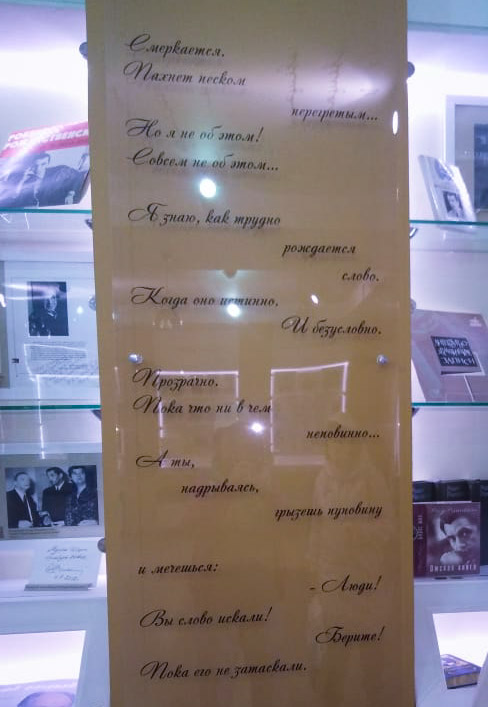 Смеркается.
Пахнет песком
перегретым...
Но я не об этом!
Совсем не об этом...
Я знаю, как трудно
рождается
слово.
Когда оно истинно.
И безусловно.
Прозрачно.
Пока что ни в чем
неповинно...
А ты,
надрываясь,
грызешь пуповину
и мечешься:
- Люди!
Вы слово искали!
Берите!
Пока его не затаскали.